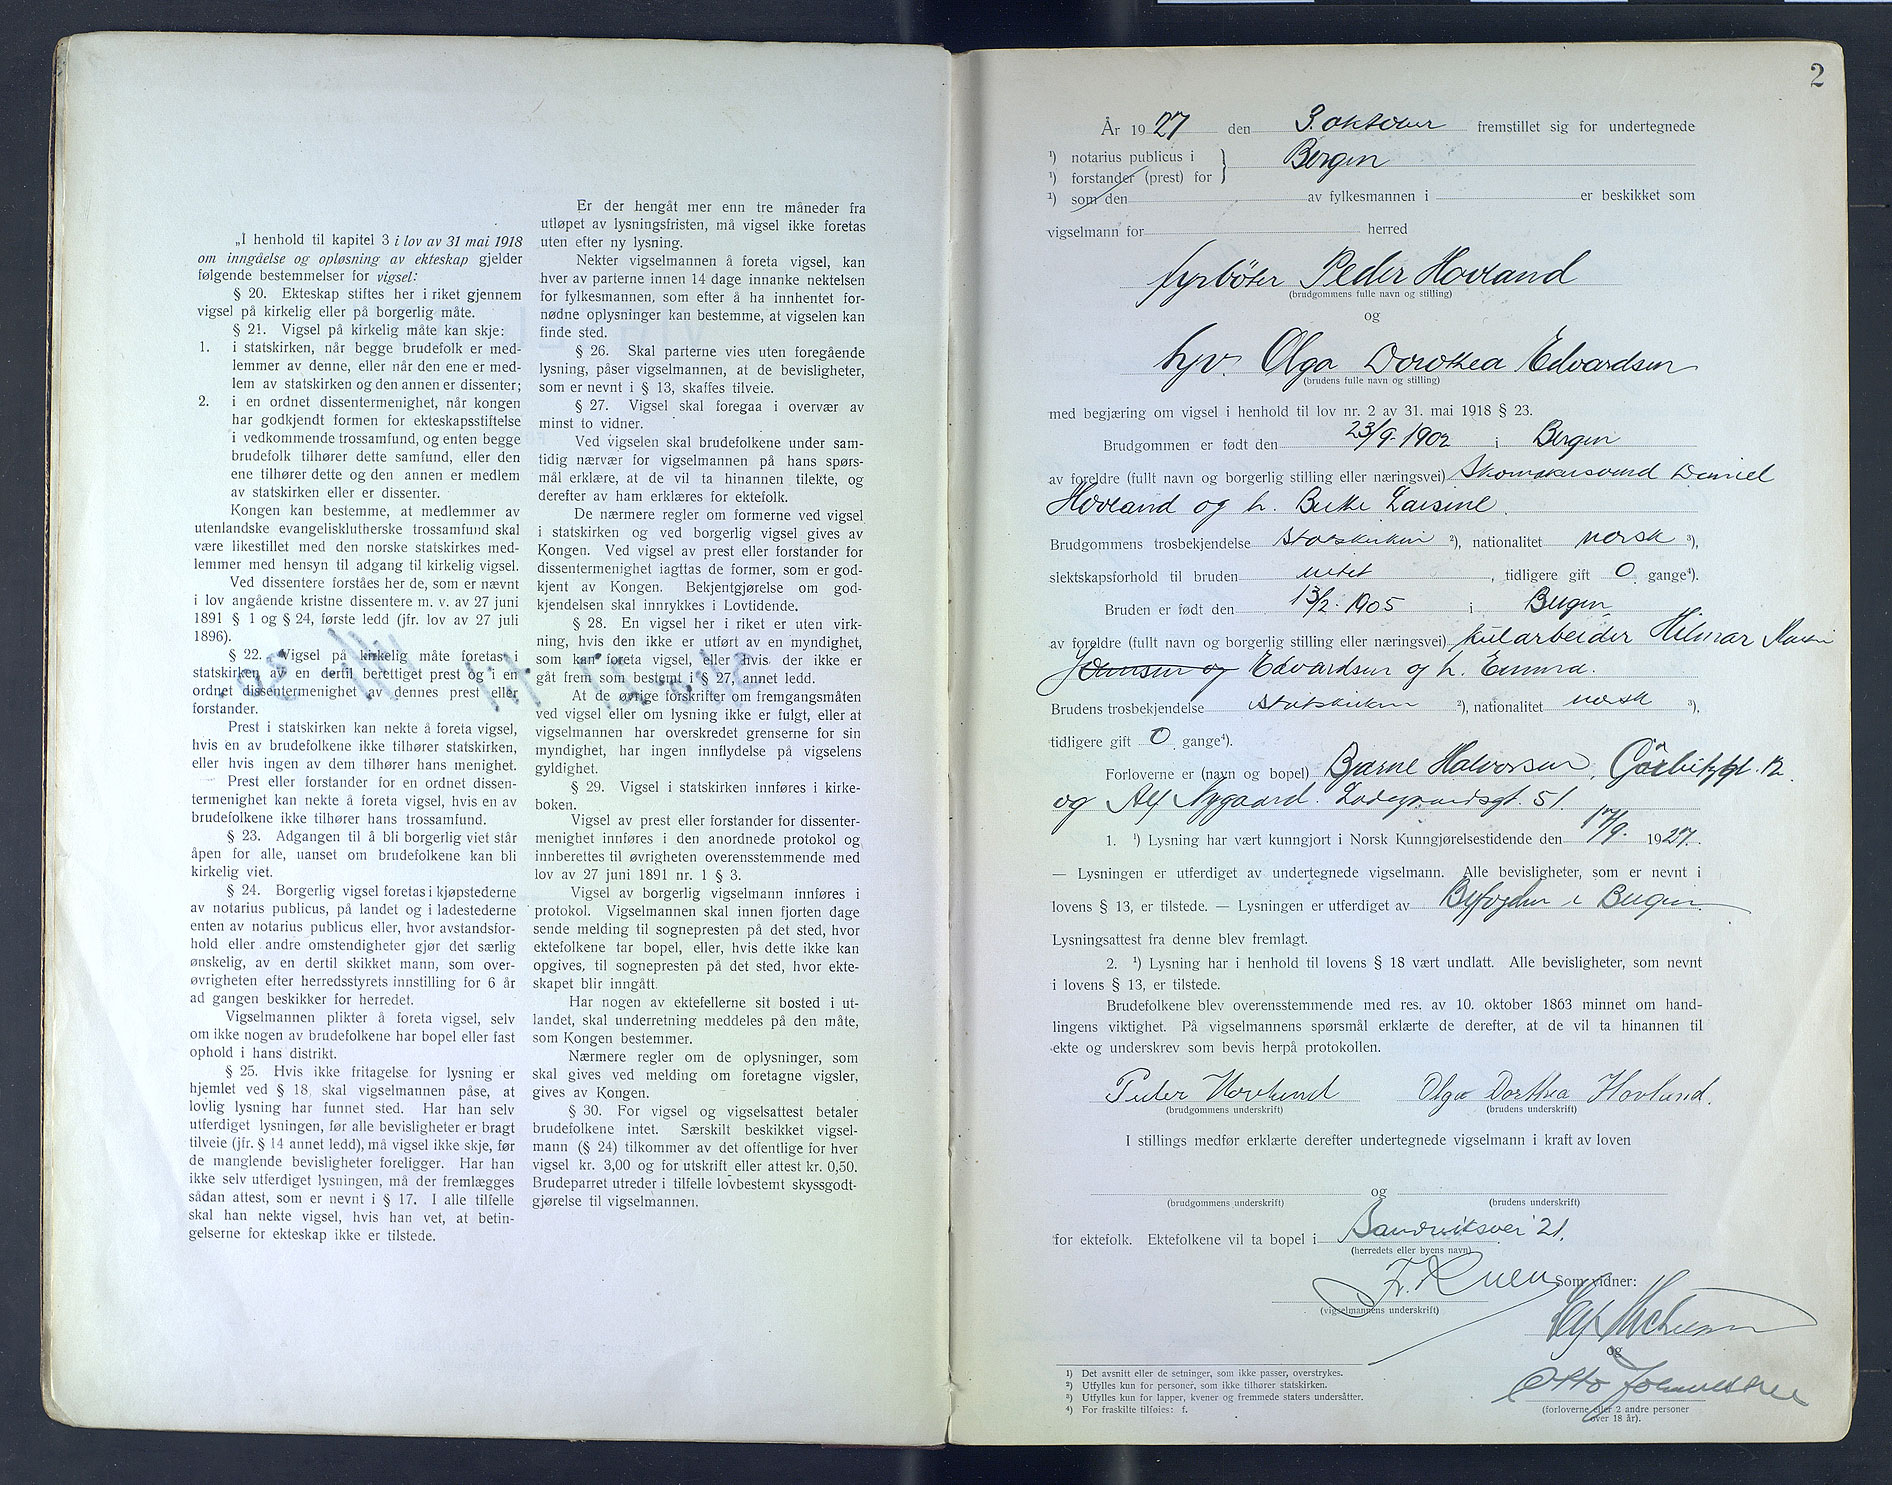 „I henhold til kapitel 3 i lov av 31 mai 1918
om inngåelse og opløsning av ekteskap gjelder
følgende bestemmelser for vigsel:
§ 20. Ekteskap stiftes her i riket gjennem
vigsel på kirkelig eller på borgerlig måte.
§ 21. Vigsel på kirkelig måte kan skje:
1. i statskirken, når begge brudefolk er med-
lemmer av denne, eller når den ene er med-
lem av statskirken og den annen er dissenter;
2. i en ordnet dissentermenighet, når kongen
har godkjendt formen for ekteskapsstiftelse
i vedkommende trossamfund, og enten begge
brudefolk tilhører dette samfund, eller den
ene tilhører dette og den annen er medlem
av statskirken eller er dissenter.
Kongen kan bestemme, at medlemmer av
utenlandske evangelisklutherske trossamfund skal
være likestillet med den norske statskirkes med-
lemmer med hensyn til adgang til kirkelig vigsel.
Ved dissentere forståes her de, som er nævnt
i lov angående kristne dissentere m. v. av 27 juni
1891 § 1 og § 24, første ledd (jfr. lov av 27 juli
1896).
§ 22. Vigsel på kirkelig måte foretas i
statskirken av en dertil berettiget prest og i en
ordnet dissentermenighet av dennes prest eller
forstander.
Prest i statskirken kan nekte å foreta vigsel,
hvis en av brudefolkene ikke tilhører statskirken,
eller hvis ingen av dem tilhører hans menighet.
Prest eller forstander for en ordnet dissen-
termenighet kan nekte å foreta vigsel, hvis en av
brudefolkene ikke tilhører hans trossamfund.
§ 23. Adgangen til å bli borgerlig viet står
åpen for alle, uanset om brudefolkene kan bli
kirkelig viet.
§ 24. Borgerlig vigsel foretas i kjøpstederne
av notarius publicus, på landet og i ladestederne
enten av notarius publicus eller, hvor avstandsfor-
hold eller andre omstendigheter gjør det særlig
ønskelig, av en dertil skikket mann, som over-
øvrigheten efter herredsstyrets innstilling for 6 år
ad gangen beskikker for herredet.
Vigselmannen plikter å foreta vigsel, selv
om ikke nogen av brudefolkene har bopel eller fast
ophold i hans distrikt.
§ 25. Hvis ikke fritagelse for lysning er
hjemlet ved § 18, skal vigselmannen påse, at
lovlig lysning har funnet sted. Har han selv
utferdiget lysningen, før alle bevisligheter er bragt
tilveie (jfr. § 14 annet ledd), må vigsel ikke skje, før
de manglende bevisligheter foreligger. Har han
ikke selv utferdiget lysningen, må der fremlægges
sådan attest, som er nevnt i § 17. I alle tilfelle
skal han nekte vigsel, hvis han vet, at betin-
gelserne for ekteskap ikke er tilstede.
Er der hengåt mer enn tre måneder fra
utløpet av lysningsfristen, må vigsel ikke foretas
uten efter ny lysning.
Nekter vigselmannen å foreta vigsel, kan
hver av parterne innen 14 dage innanke nektelsen
for fylkesmannen, som efter å ha innhentet for-
nødne oplysninger kan bestemme, at vigselen kan
finde sted.
§ 26. Skal parterne vies uten foregående
lysning, påser vigselmannen, at de bevisligheter,
som er nevnt i § 13, skaffes tilveie.
§ 27. Vigsel skal foregaa i overvær av
minst to vidner.
Ved vigselen skal brudefolkene under sam-
tidig nærvær for vigselmannen på hans spørs-
mål erklære, at de vil ta hinannen tilekte, og
derefter av ham erklæres for ektefolk.
De nærmere regler om formerne ved vigsel
i statskirken og ved borgerlig vigsel gives av
Kongen. Ved vigsel av prest eller forstander for
dissentermenighet iagttas de former, som er god-
kjent av Kongen. Bekjentgjørelse om god-
kjendelsen skal innrykkes i Lovtidende.
§ 28. En vigsel her i riket er uten virk-
ning, hvis den ikke er utført av en myndighet,
som kan foreta vigsel, eller hvis der ikke er
gåt frem som bestemt i § 27, annet ledd.
At de øvrige forskrifter om fremgangsmåten
ved vigsel eller om lysning ikke er fulgt, eller at
vigselmannen har overskredet grenserne for sin
myndighet, har ingen innflydelse på vigselens
gyldighet.
§ 29. Vigsel i statskirken innføres i kirke-
boken.
Vigsel av prest eller forstander for dissenter-
menighet innføres i den anordnede protokol og
innberettes til øvrigheten overensstemmende med
lov av 27 juni 1891 nr. 1 § 3.
Vigsel av borgerlig vigselmann innføres i
protokol. Vigselmannen skal innen fjorten dage
sende melding til sognepresten på det sted, hvor
ektefolkene tar bopel, eller, hvis dette ikke kan
opgives, til sognepresten på det sted, hvor ekte-
skapet blir inngått.
Har nogen av ektefellerne sit bosted i ut-
landet, skal underretning meddeles på den måte,
som Kongen bestemmer.
Nærmere regler om de oplysninger, som
skal gives ved melding om foretagne vigsler,
gives av Kongen.
§ 30. For vigsel og vigselsattest betaler
brudefolkene intet. Særskilt beskikket vigsel-
mann (§ 24) tilkommer av det offentlige for hver
vigsel kr. 3,00 og for utskrift eller attest kr. 0,50.
Brudeparret utreder i tilfelle lovbestemt skyssgodt-
gjørelse til vigselmannen.
2
År 1927 den 3. oktober fremstillet sig for undertegnede
¹) notarius publicus i } Bergen
¹) forstander (prest) for
¹) som den av fylkesmannen i er beskikket som
vigselmann for herred
fyrbøter Peder Hovland
(brudgommens fulle navn og stilling)
og
hpv. Olga Dorothea Edvardsen
(brudens fulle navn og stilling)
med begjæring om vigsel i henhold til lov nr. 2 av 31. mai 1918 § 23.
Brudgommen er født den 23/9-1902 i Bergen
av foreldre (fullt navn og borgerlig stilling eller næringsvei) Skomakersvend Daniel
Hovland og h. Berthe Larsine
Brudgommens trosbekjendelse Statskirken ²), nationalitet norsk ³),
slektskapsforhold til bruden intet , tidligere gift 0 gange⁴).
Bruden er født den 13/2-1905 i Bergen
av foreldre (fullt navn og borgerlig stilling eller næringsvei) kularbeider Hilmar
Johnsen og Edvardsen og h. Emma.
Brudens trosbekjendelse Statskirken ²), nationalitet norsk ³),
tidligere gift 0 gange⁴).
Forloverne er (navn og bopel) Bjarne Halvorsen,
og Alf Nygaard. Ladegaardsgt. 51.
1. ¹) Lysning har vært kunngjort i Norsk Kunngjørelsestidende den 17/9. 1927.
— Lysningen er utferdiget av undertegnede vigselmann. Alle bevisligheter, som er nevnt i
lovens § 13, er tilstede. — Lysningen er utferdiget av Byfogden i Bergen
Lysningsattest fra denne blev fremlagt.
2. ¹) Lysning har i henhold til lovens § 18 vært undlatt. Alle bevisligheter, som nevnt
i lovens § 13, er tilstede.
Brudefolkene blev overensstemmende med res. av 10. oktober 1863 minnet om hand-
lingens viktighet. På vigselmannens spørsmål erklærte de derefter, at de vil ta hinannen til
ekte og underskrev som bevis herpå protokollen.
Peder Hovland Olga Dorthea Hovland.
(brudgommens underskrift) (brudens underskrift)
I stillings medfør erklærte derefter undertegnede vigselmann i kraft av loven
og
(brudgommens underskrift) (brudens underskrift)
for ektefolk. Ektefolkene vil ta bopel i Sandviksvei 21.
(herredets eller byens navn)
Som vidner:
(vigselmannens underskrift)
og
Otto
(forloverne eller 2 andre personer
over 18 år).
¹) Det avsnitt eller de setninger, som ikke passer, overstrykes.
²) Utfylles kun for personer, som ikke tilhører statskirken.
³) Utfylles kun for lapper, kvener og fremmede staters undersåtter.
⁴) For fraskilte tilføies: f.